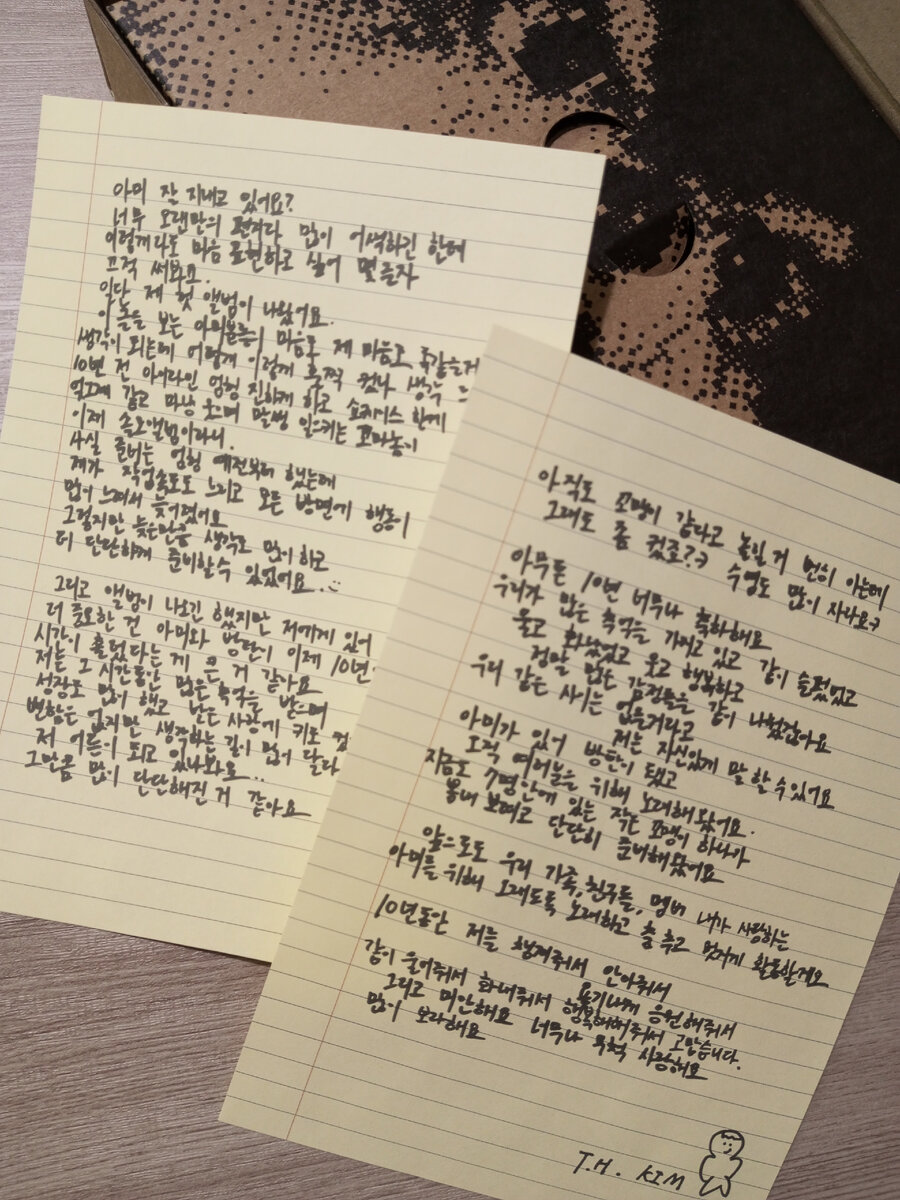 아미 잘 지내고 있어요?
너무 오랜만의 편지라 많이 어색하긴 한데
이렇게라도 마음 표현하고 싶어 몇글자
끄적 써봐요.
일단 제 첫 앨범이 나왔어요.
이 놀을 보는 아미분들의 마음도 제 마음도 똑같을거
생각이 되는데 어떻게 이렇게 훌쩍 컸나 생각
10년 전 아이라인 엄청 진하게 하고 쇼케이스 한게
엊그제 같고 마냥 웃으며 말썽 일으키는 꼬마놈이
이제 솔로앨범이라니.
사실 준비는 엄청 예전부터 했는데
제가 작업속도도 느리고 모든 방면에 행동이
많이 느려서 늦어졌어요
그렇지만 늦은만큼 생각도 많이 하고
더 단단하게 준비할수 있었어요..
그리고 앨범이 나오긴 했지만 저에게 있어
더 중요한 건 아미와 방탄이 이제 10년
시간이 흘렀다는 게 큰 거 같아요
저는 그 시간동안 많은 추억을 받으며
성장도 많이 했고 난은 사랑에 키도
변함은 없지만 생각하는 길이 많이 달라
저 어른이 되고 있나봐요..
그만큼 많이 단단해진 거 같아요
아직도 꼬맹이 같다고 놀릴 거 뻔히 아는데
그래도 좀 컸죠?ㅋ 수염도 많이 자라요ㅋ
아무튼 10년 너무나 축하해요
우리가 많은 추억을 가지고 있고 같이 슬펐었고
울고 화났었고 웃고 행복하고
정말 많은 감정들을 같이 나눴잖아요
우리 같은 사이는 없을거라고 저는 자신있게 말 할 수 있어요
아미가 있어 방탄이 됐고
오직 여러분을 위해 노래해 왔어요.
지금도 7명안에 있는 작은 꼬맹이 하나가
뽐내 보려고 단단히 준비해 왔어요
앞으로도 우리 가족, 친구들, 멤버 내가 사랑하는
아미를 위해 오래도록 노래하고 춤 추고 멋지게 활동할게요
10년동안 저를 챙겨줘서 안아줘서
용기나게 응원해줘서
같이 울어줘서 화내줘서 행복해해줘서 고맙습니다.
그리고 미안해요 너무나 무척 사랑해요
많이 보라해요
T.H. KIM